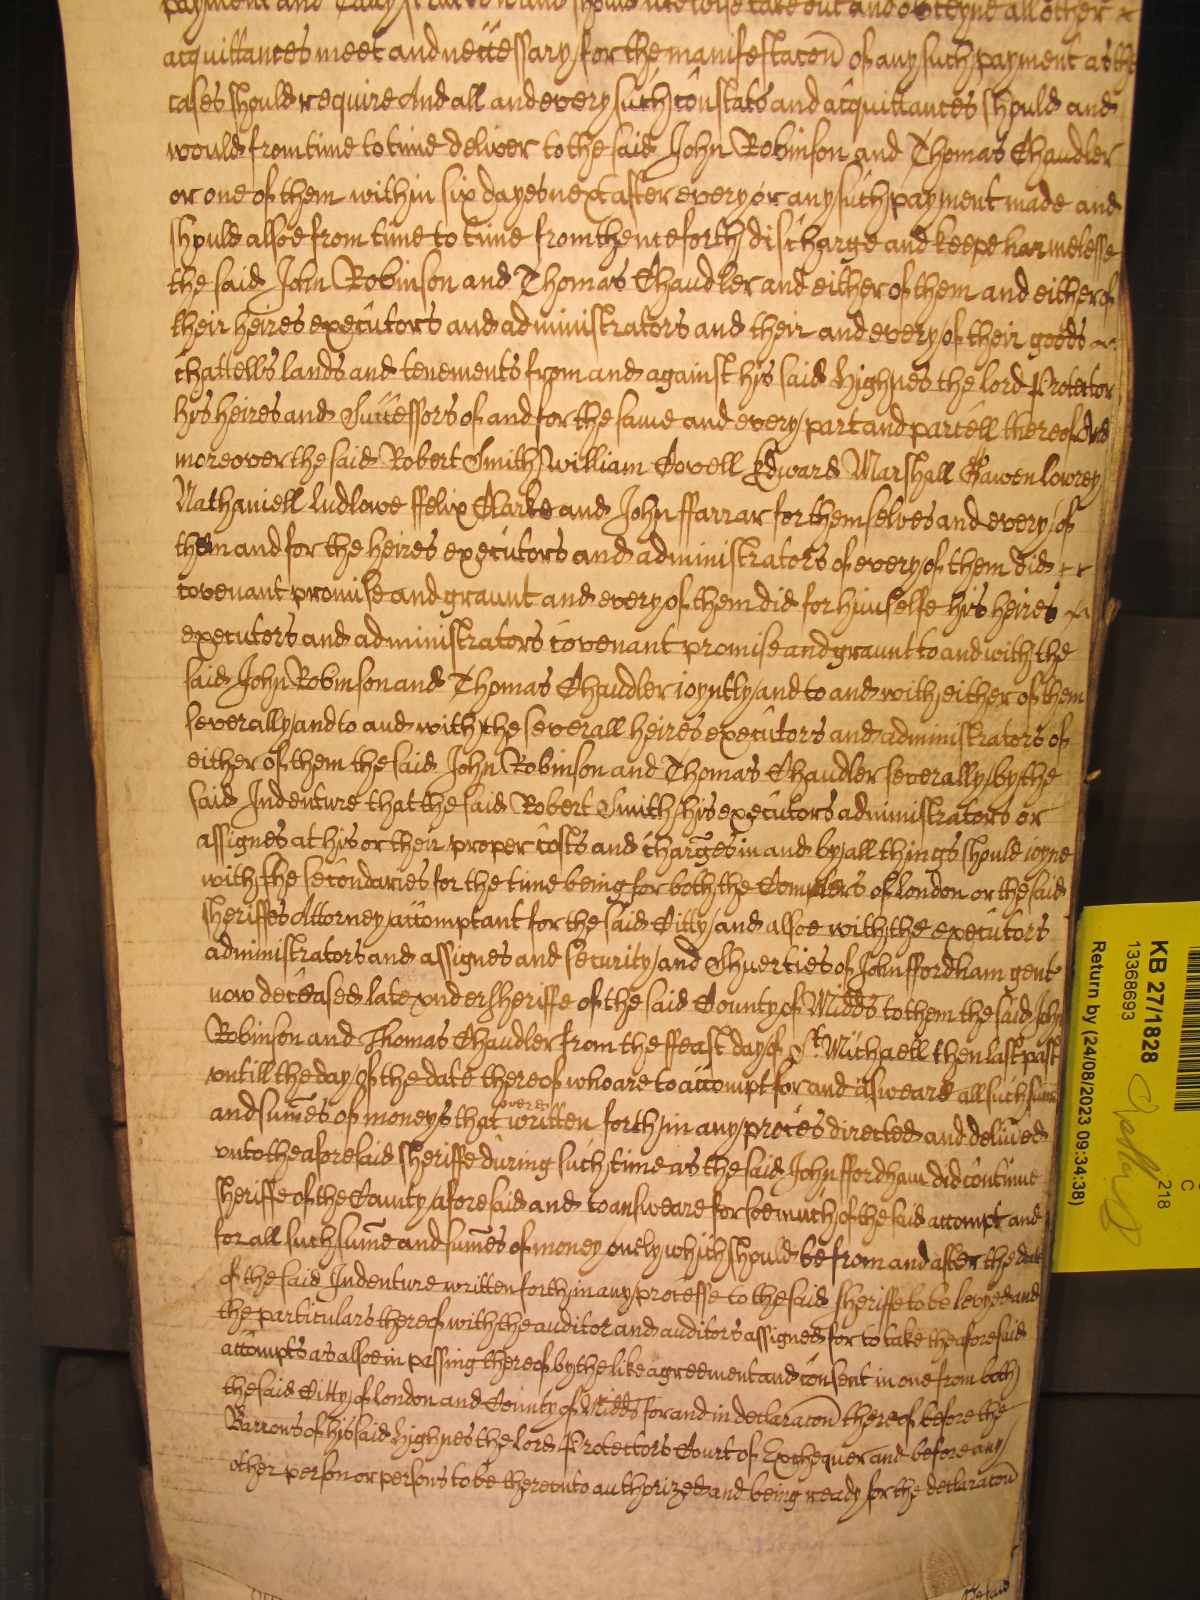 payment and and should likewise take out and obteyne all other
acquittances meet and necessary for the manifestacon of any such payment as the
cases should require And all and every such constats and acquittances should and
would from time to time deliver to the said John Robinson and Thomas Chandler
or one of them within six dayes next after every or any such payment made and
should alsoe from time to time from thenceforth discharge and keepe harmelesse
the said John Robinson and Thomas Chandler and either of them and either of
their heires executors and administrators and their and every of their goods
chattells lands and tenements from and against his said Highnes the lord Protector
his heires and Successors of and for the same and every part and parcell thereof And
moreover the said Robert Smith William Covell Edward Marshall Gawen Lowrey
Nathaniell Ludlowe ffelix Clarke and John ffarrar for themselves and every of
them and for the heires executors and administrators of every of them did
covenant promise and graunt and every of them did for himselfe his heires
executors and administrators covenant promise and graunt to and with the
said John Robinson and Thomas Chandler ioyntly and to and with either of them
severally and to and with the severall heires executors and administrators of
either of them the said John Robinson and Thomas Chandler severally by the
said Indenture that the said Robert Smith his executors administrators or
assignes at his or their proper costs and charges in and by all things should ioyne
with the secondaries for the time being for both the Compters of London or the said
sheriffes Attorney accomptant for the said Citty and alsoe with the executors
administrators and assignes and security and Shuerties of John ffordham gent
now deceased late undersheriffe of the said County of Midds to them the said John
Robinson and Thomas Chandler from the ffeast day of St Michaell then last past
untill the day of the date thereof who are to accompt for and answeare all such summe
and summes of moneys that were written forth in any proces directed and delivered
unto the aforesaid sheriffe during such time as the said John ffordham did continue
sheriffe of the County aforesaid and to answeare for soe much of the said accompt and
for all such summe and summes of money onely which should be from and after the date
of the said Indenture written forth in any processe to the said sheriffe to be levyed and
the particulars thereof with the auditor and auditors assigned for to take the aforesaid
accompts as alsoe in passing thereof by the like agreement and consent in one from both
the said Citty of London and County of Midds for and in declaracon thereof before the
Barrons of his said Highnes the lord Protectors Court of Exchequer and before any
other person or persons to be thereunto authorized and being ready for the declaracon
KB 27/1828
13368693
Return by (24/08/2023 09:34:38)
C
218